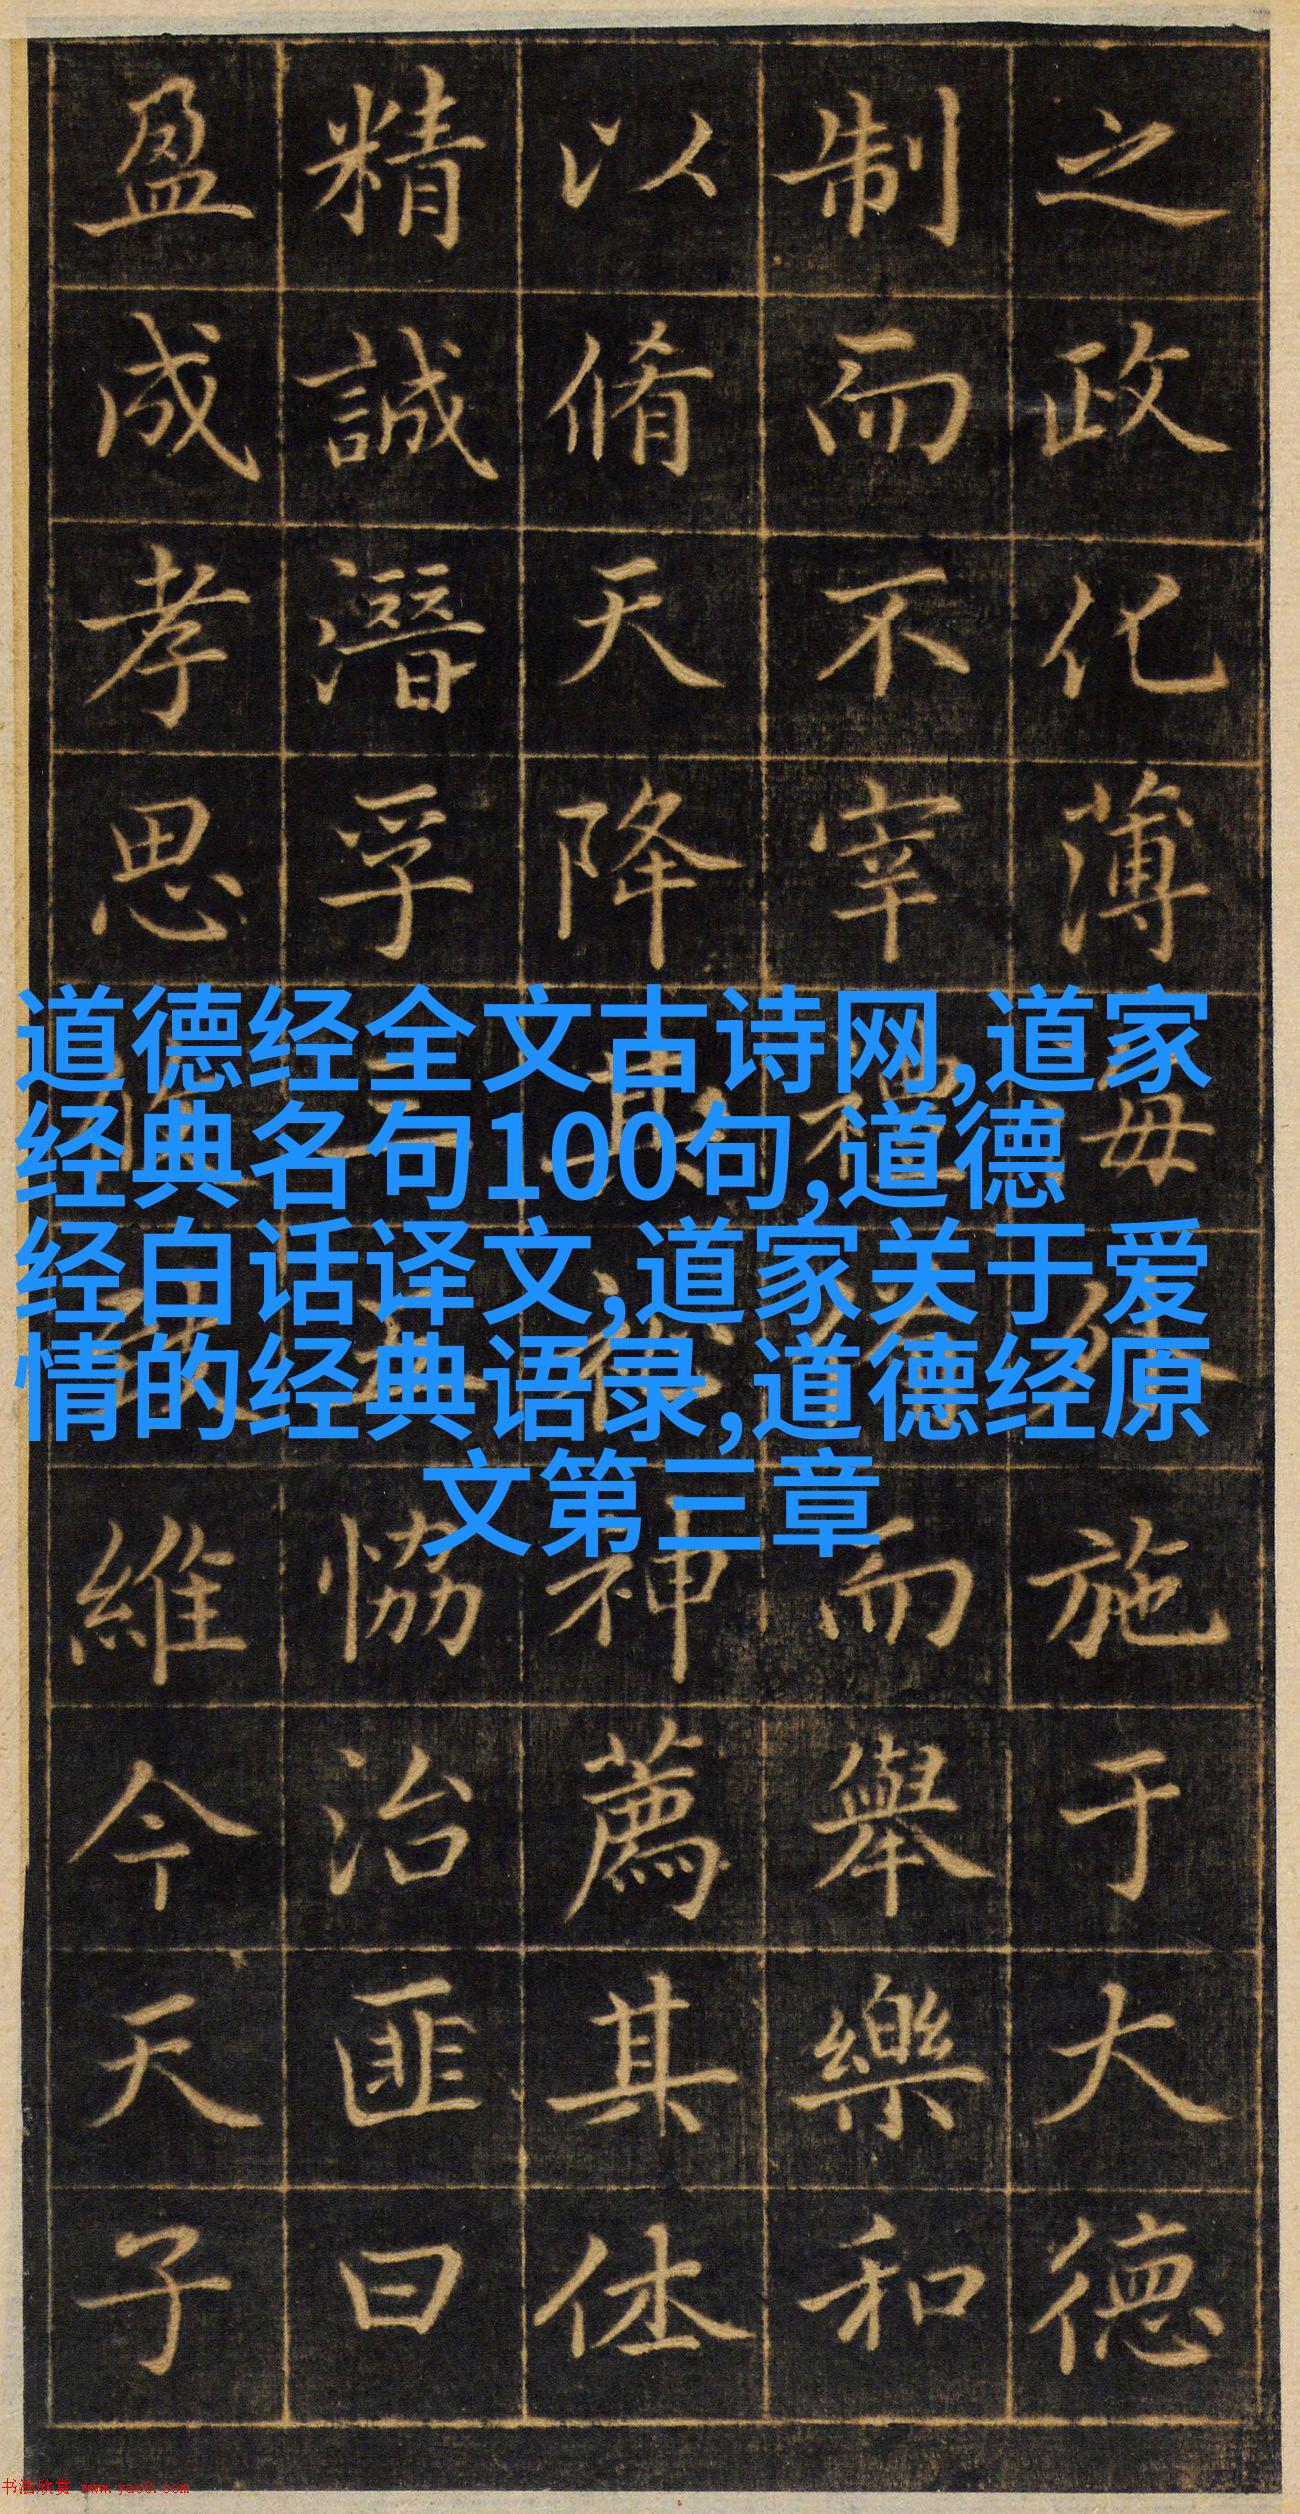 之政化薄施于大德
制而不宰而舉樂和
以脩天降其神薦其休
精誠潛孚三恊治匪曰
盈成孝思維今天子
道德经全文古诗网,道家
经典名句100句,道德
经白话译文,道家关于爱
情的经典语录,道德经原
文第三章
书法欣赏 www.yac8.com